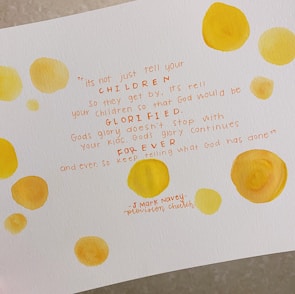 "its not just tell your
CHILDREN
so they get by, it's tell
your children so that God would be
GLORIFIED.
Gods glory doesnt stop with
your kids, Gods glory continues
FOREVER
and ever. So keep telling what God has done"
-J Mark Davey-
Church